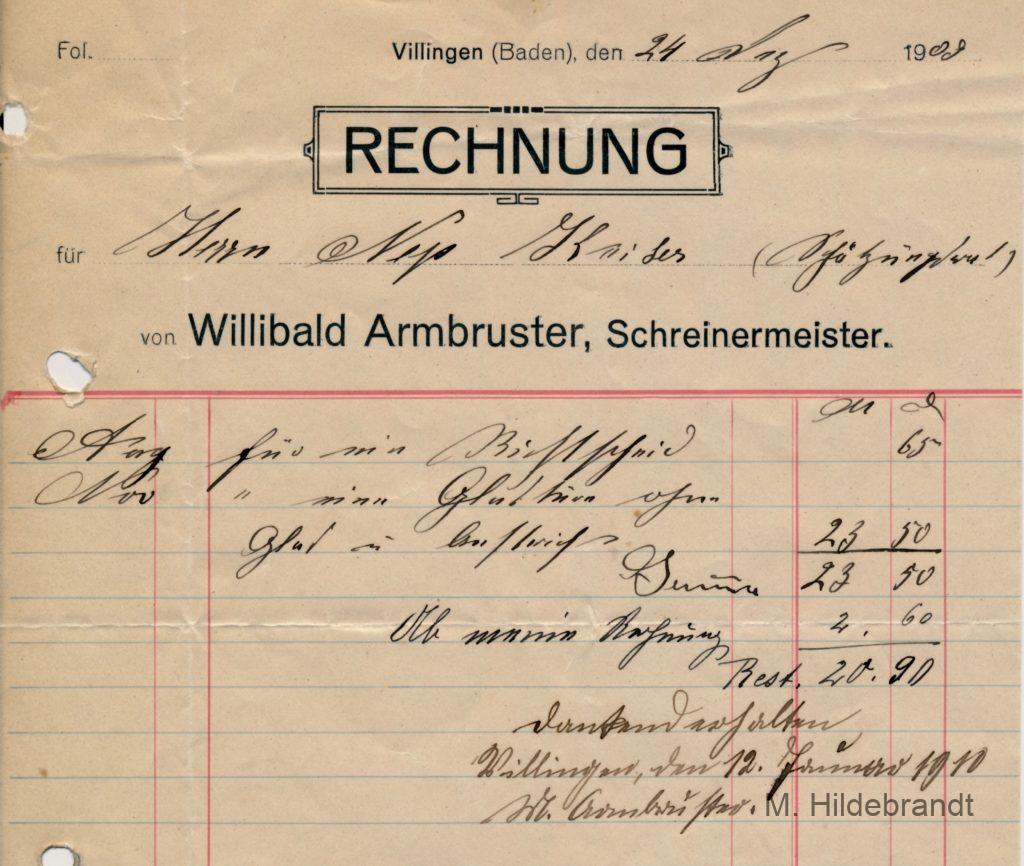 Fol.
Villingen (Baden), den 24 Dez 1909
RECHNUNG
für Herrn Nep Kaiser (Schätzungsrat)
von Willibald Armbruster, Schreinermeister.
M ₰
Aug für ein Richtscheid 65
Nov " eine Glastüre ohne
Glas u Anstrich 23 50
Summa 23 50
Ab meine Rechnung 2. 60
Rest. 20. 90
dankend erhalten
Villingen, den 12. Januar 1910
W. Armbruster.
M. Hildebrandt